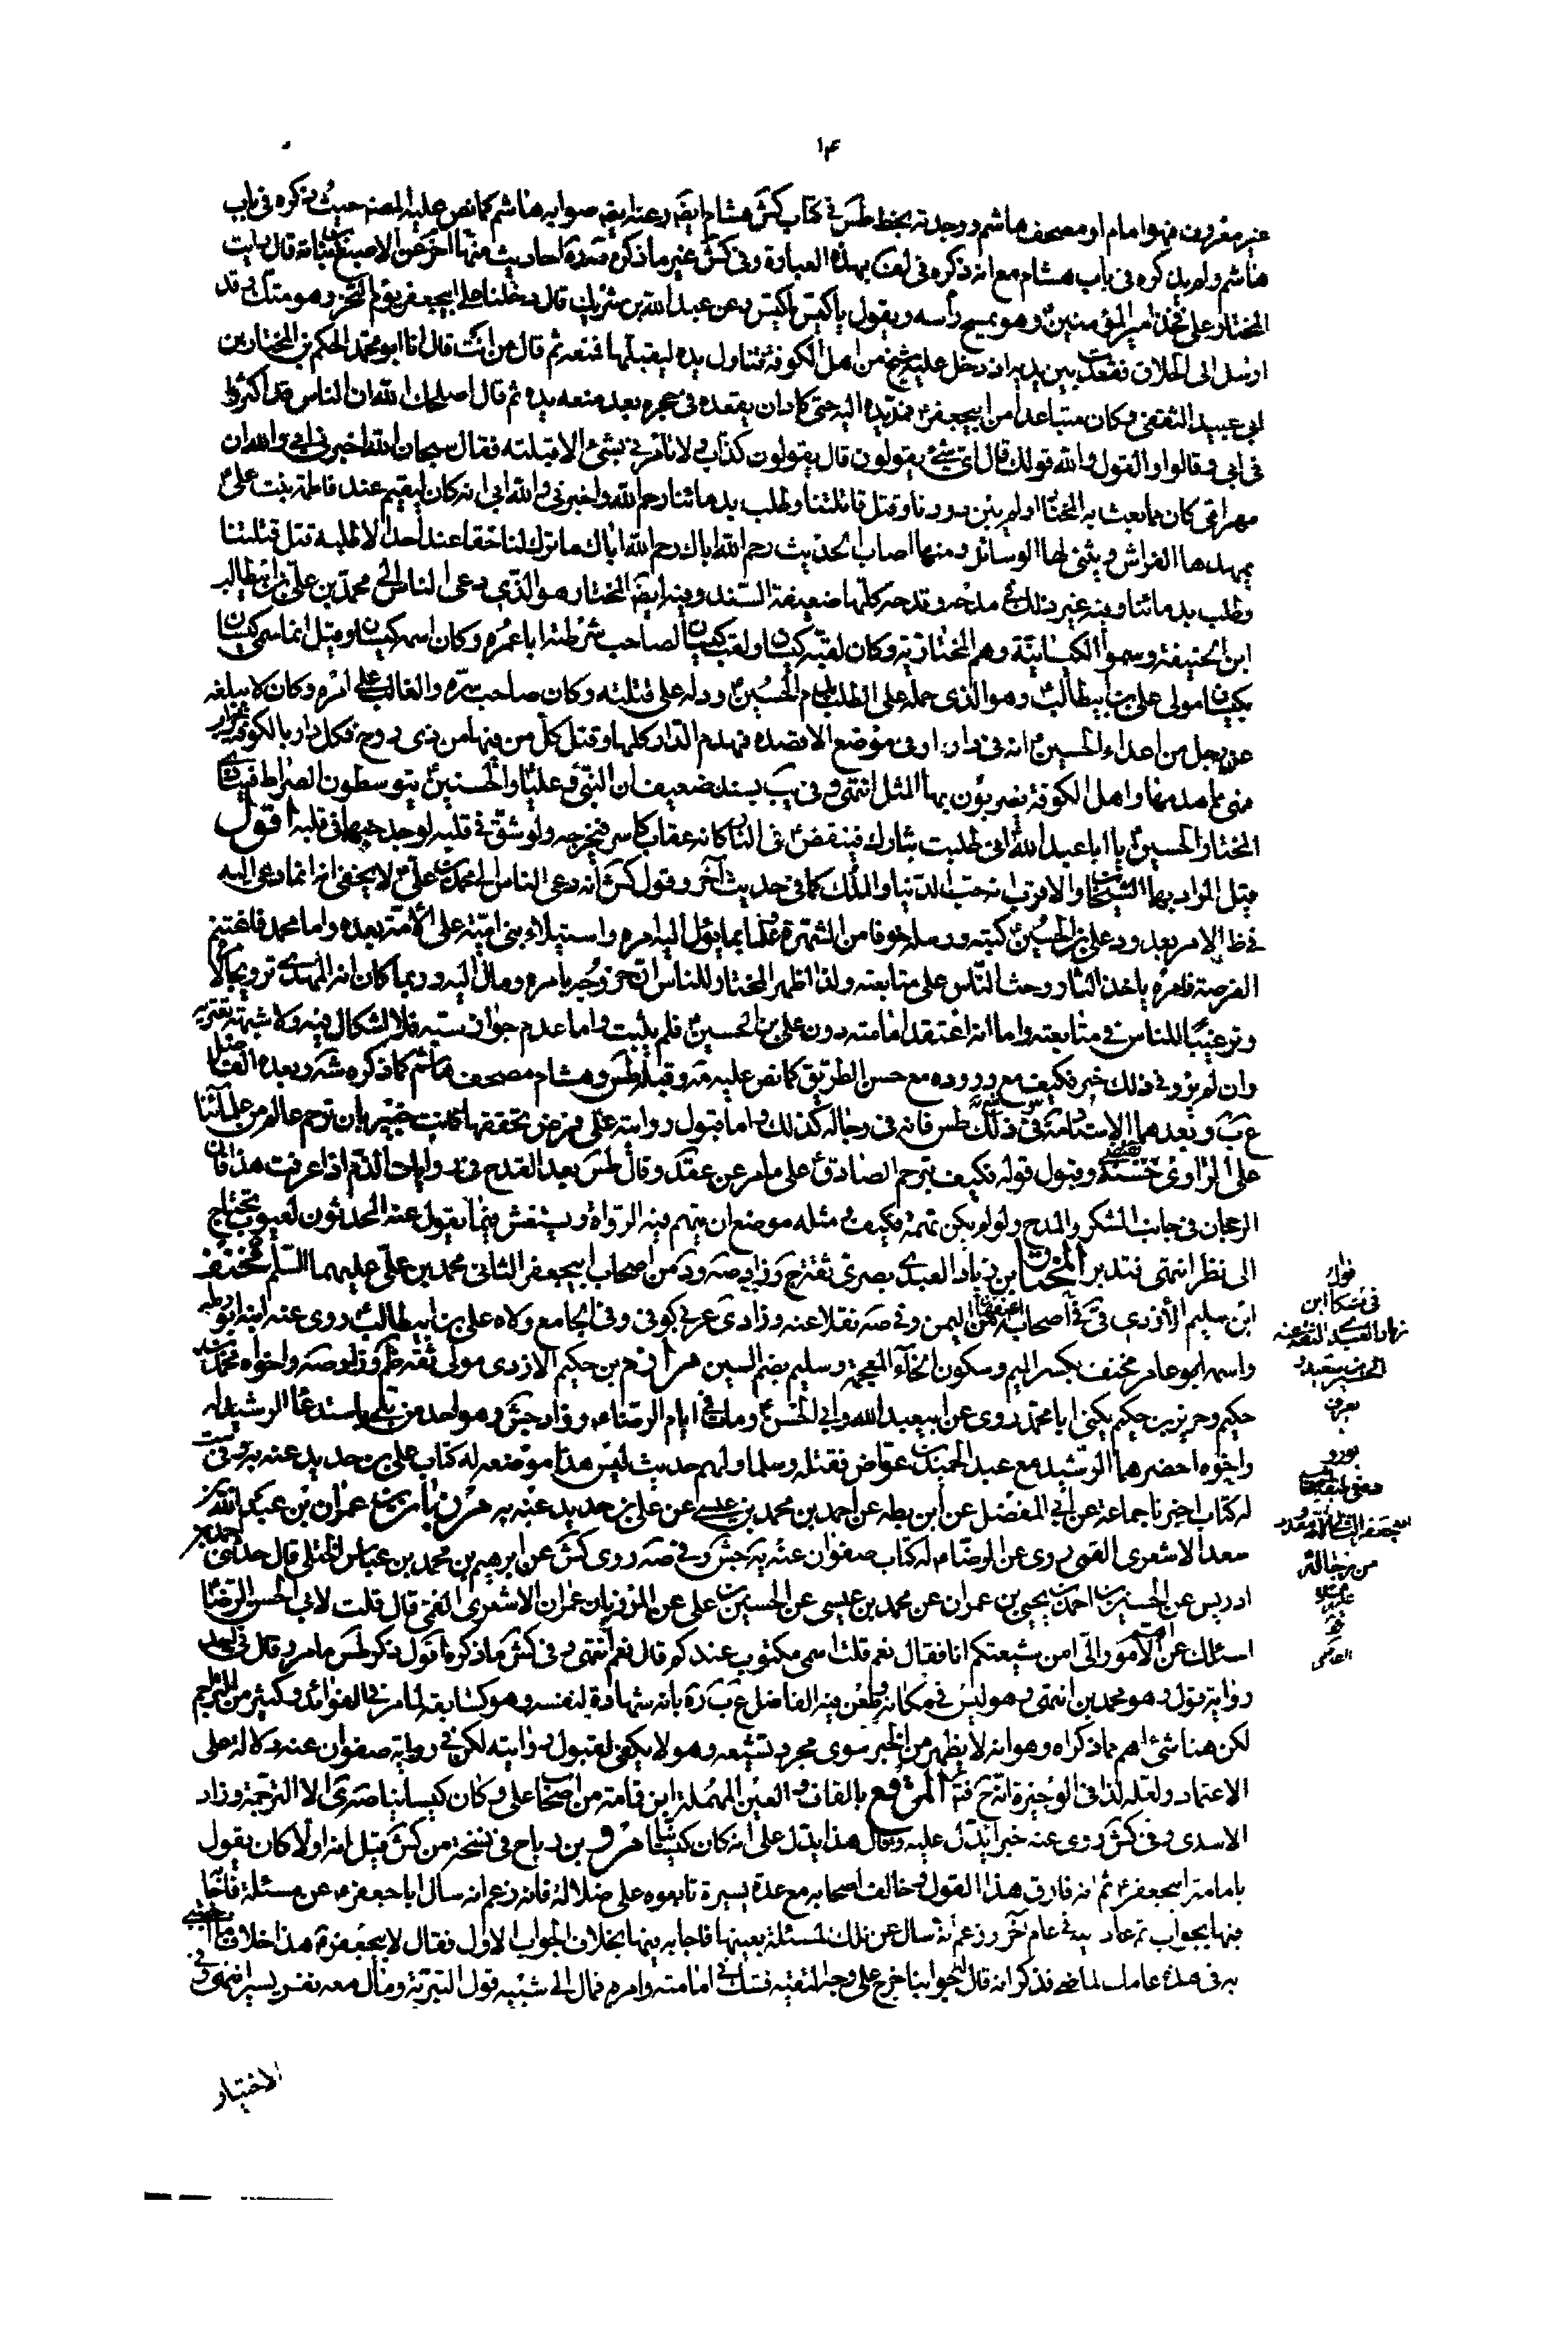 ١٤
غير معروف فهو امام او مصحف هاشم ووجدته بخط طس في كتاب كش هشام ايضا وعنه ايضا صوابه هاشم كما نص عليه المصنف حيث ذكره في باب
هاشم ولم يذكره في باب هشام مع انه ذكره في بهذه العبارة وفي كش غير ما ذكره احاديث منها اخر عن الاصبغ بن نباتة قال رايت
المختار على فخذ امير المؤمنين وهو يمسح رأسه ويقول ياكيس ياكيس وعن عبد الله بن شريك قال دخلنا على ابيجعفر يوم النحر وهو متك وقد
ارسل الى الحلاق فقعدت بين يديه اذ دخل عليه شيخ من اهل الكوفة فتناول يده ليقبلها فمنعه ثم قال من انت قال انا ابو محمد الحكم بن المختار بن
ابي عبيد الثقفي وكان متباعدا من ابيجعفر فمد يده اليه حتى كاد ان يقعده في حجره بعد منعه يده ثم قال اصلحك الله ان الناس قد اكثروا
في ابي وقالوا والقول والله قولك قال اي شئ يقولون قال يقولون كذاب ولا تامرني بشئ الا قبلته فقال سبحان الله اخبرني ابي والله ان
مهر امي كان مما بعث به المختار اولم يبن دورنا وقتل قاتلتنا وطلب بدمائنا رحم الله واخبرني والله ابي انه كان ليقيم عند فاطمة بنت علي
يمهدها الفراش ويثني لها الوسائد ومنها اصاب الحديث رحم الله اباك رحم الله اباك ما ترك لنا حقا عند احد الا طلبه قتل قتلتنا
وطلب بدمائنا وفيه غير ذلك في مدحه وقدحه كلها ضعيفة السند وفيه ايضا المختار هو الذي دعى الناس الى محمد بن علي بن ابيطالب
ابن الحنيفة وسموا الكيسانية وهم المختارية وكان لقبه كيسان ولقب كيسان لصاحب شرطته ابا عمرة وكان اسمه كيسان وقيل انما سمي كيسان
بكيسان مولى علي بن ابيطالب وهو الذي حمله على الطلب بدم الحسين ودله على قتلته وكان صاحب سره والغالب على امره وكان لا يبلغه
عن رجل من اعداء الحسين انه في دار او في موضع الا قصده فهدم الدار كلها وقتل كل من فيها من ذي روح فكل دار بالكوفة خراب
فهي مما هدمها واهل الكوفة يضربون بها المثل انتهى وفي يب بسند ضعيف ان النبي وعليا والحسنين يتوسطون الصراط فينادي
المختار الحسين يا ابا عبد الله اني طلبت بثارك فينقض في النار كانه عقاب كاسر فيخرجه ولو شق في قلبه لوجد حبهما في قلبه اقول
قيل المراد بهما الشيخان والاقرب انه حب الدنيا والملك كما في حديث آخر وقول كش انه دعى الناس الى محمد بن علي لا يخفى انه انما دعى اليه
في ظاهر الامر بعد رد علي بن الحسين كتبه ورسله خوفا من الشهرة وعلما بما يؤل اليه امره واستيلاء بني امية على الامة بعده واما محمد فاغتنم
الفرصة فامره باخذ الثار وحث الناس على متابعته ولذا اظهر المختار للناس ان خروجه بامره ومال اليه وربما كان انه المهدي ترويجا لامره
وترغيبا للناس في متابعته واما انه اعتقد امامته دون علي بن الحسين فلم يثبت واما عدم جواز سبه فلا اشكال فيه ولا شبهة تعتريه
وان لم يرو في ذلك خبر فكيف مع وروده مع حسن الطريق كما نص عليه وقبله طس وهشام مصحف هاشم كما ذكره وبعده الفاضل
ع ب وبعدهما الاستاد العلامة في ذلك طس فانه في رجاله كذلك واما قبول روايته على فرض تحققها كانت خبير بان ترحم عالم من علمائنا
على الراوي حسنه وقبول قوله فكيف بترحم الصادق على ما مر عن عقد وقال طس بعد القدح في روايات الذم اذا عرفت هذا فان
الرجحان في جانب الشكر والمدح ولو لم يكن تهمة فكيف ومثله موضع ان يتهم فيه الرواة ويستغش فيما يقول عنه المحدثون لعيوب تحتاج
الى نظر انتهى فتدبر المختار بن زياد العبدي بصري ثقة ج وزاد صه ود من اصحاب ابيجعفر الثاني محمد بن علي عليهما السلم مخنف
ابن سليم الازدي في اصحاب من اليمن وفي صه نقلا عنه وزاد ى عربي كوفي وفي الجامع ولاه علي بن ابيطالب روى عنه ابنه ابو رملة
واسمه ابو عامر مخنف بكسر الميم وسكون الخاء المعجمة وسليم بضم السين مرازم بن حكيم الازدي مولى ثقة ظم وزاد صه واخواه محمد بن
حكيم وحريز بن حكيم يكنى ابا محمد روى عن ابيعبد الله وابي الحسن ومات في ايام الرضا وزاد جش وهو احد من بلى باستدعا الرشيد له
واخوه احضرهما الرشيد مع عبد الحميد بن عواض فقتله وسلما ولهم حديث ليس هذا موضعه له كتاب علي بن حديد عنه به وفي ست
له كتاب اخبرنا جماعة عن ابي المفضل عن ابن بطه عن احمد بن محمد بن عيسى عن علي بن حديد عنه به مرزبان بن عمران بن عبد الله بن
سعد الاشعري القمي روى عن الرضا له كتاب صفوان عنه به جش وفي صه روى كش عن ابرهيم بن محمد بن عباس الختلي قال حدثني احمد بن
ادريس عن الحسين بن احمد بن يحيى بن عمران عن محمد بن عيسى عن الحسين بن علي عن المرزبان بن عمران الاشعري القمي قال قلت لابي الحسن الرضا
اسئلك عن اهم الامور الي امن شيعتكم انا فقال نعم قلت اسمي مكتوب عندكم قال نعم انتهى وفي كش ما ذكره اقول ذكر طس ما مر وقال في احد
رواته قول وهو محمد بن انتهى وهو ليس في مكانه وطعن فيه الفاضل ع ب ره بانه شهادة لنفسه وهو كسابقه لما مر في الفوائد وكثير من التراجم
لكن هنا شئ اهم مما ذكراه وهو انه لا يظهر من الخبر سوى مجرد تشيعه وهو لا يكفي لقبول روايته لكن في رواية صفوان عنه دلالة على
الاعتماد ولعله لذا في الوجيزة انه ح فتم المرقع بالقاف والعين المهملة ابن قمامة من اصحاب علي وكان كيسانيا صه ى الا الترجمة وزاد
الاسدي وفي كش روى عنه خبرا يدل عليه وقال هذا يدل على انه كان كيسانيا مرو بن رباح في نسخة من كش قيل انه اولا كان يقول
بامامة ابيجعفر ثم انه فارق هذا القول وخالف اصحابه مع عدة يسيرة تابعوه على ضلالة فانه زعم انه سال ابا جعفر عن مسئلة فاجابه
فيها بجواب ثم عاد اليه في عام آخر وزعم انه سال عن تلك المسئلة بعينها فاجابه فيها بخلاف الجواب الاول فقال لابيجعفر هذا خلاف ما اجبتني
به في هذه عامك الماضي فذكر انه قال له جوابنا خرج على وجه التقية فشك في امامته وامره فمال الى شبيه قول البترية ومال معه نفر يسير انتهى وفي
قوله
في مشكا ابن
زياد العبدي الثقة عنه
نعرف
من رجاله
الاختيار